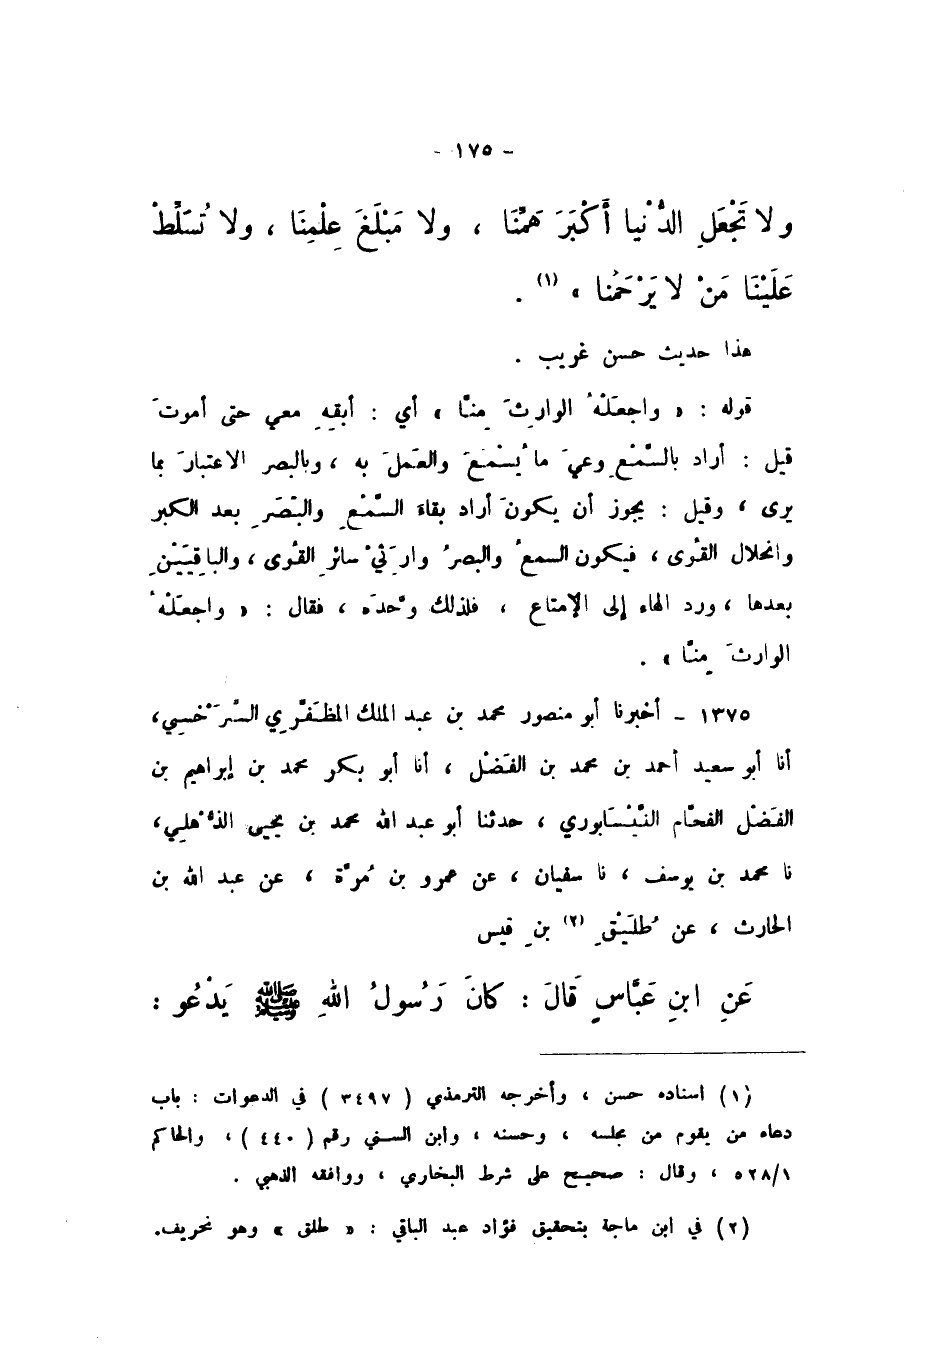 - ١٧٥ -
ولا تَجْعَلِ الدُّنْيا أَكْبَرَ هَمِّنَا ، ولا مَبْلَغَ عِلْمِنَا ، ولا تُسَلِّطْ
عَلَيْنَا مَنْ لا يَرْحَمُنا » (١) .
هذا حديث حسن غريب .
قوله : « واجعَلْهُ الوارِثَ مِنَّا » أي : أبقِهِ معي حتى أموتَ
قيل : أراد بالسَّمْعِ وعيَ ما يُسْمَعَ والعَملَ به ، وبالبصر الاعتبارَ بما
يرى ، وقيل : يجوز أن يكونَ أراد بقاءَ السَّمْعِ والبَصَرِ بعد الكبر
وانحلال القُوى ، فيكون السمعُ والبصرُ وارثَيْ سائرِ القُوى ، والباقِيَيْنِ
بعدها ، ورد الهاء إلى الإمتاع ، فلذلك وحَّدَه ، فقال : « واجعَلْهُ
الوارثَ مِنَّا » .
١٣٧٥ - أخبرنا أبو منصور محمد بن عبد الملك المظَفَّرِي السَّرَخْسِي،
أنا أبو سعيد أحمد بن محمد بن الفَضْل ، أنا أبو بكر محمد بن إبراهيم بن
الفَضْل الفحَّام النَّيْسَابوري ، حدثنا أبو عبد الله محمد بن يحيى الذُّهْلي،
نا محمد بن يوسف ، نا سفيان ، عن عمرو بن مُرَّة ، عن عبد الله بن
الحارث ، عن طُلَيْقِ (٢) بنِ قيس
عَنِ ابنِ عَبَّاسٍ قَالَ : كانَ رَسولُ اللهِ ﷺ يَدْعُو :
(١) اسناده حسن ، وأخرجه الترمذي ( ٣٤٩٧ ) في الدعوات : باب
دعاء من يقوم من مجلسه ، وحسنه ، وابن السني رقم ( ٤٤٠ ) ، والحاكم
٥٢٨/١ ، وقال : صحيح على شرط البخاري ، ووافقه الذهبي .
(٢) في ابن ماجة بتحقيق فؤاد عبد الباقي : « طلق » وهو تحريف.